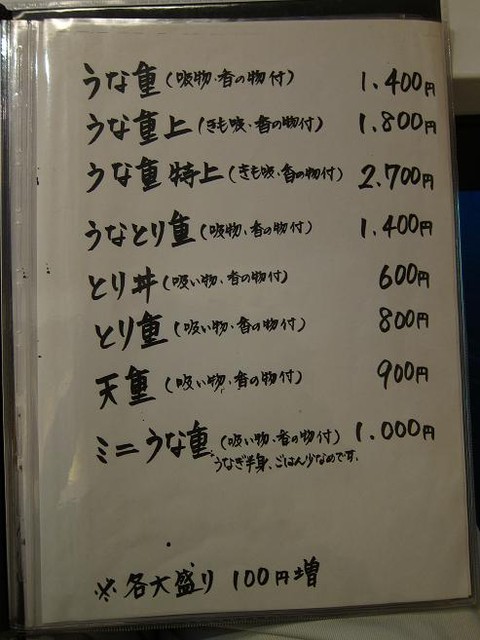 うな重(吸物・香の物付) 1.400円
うな重上(きも吸・香の物付) 1.800円
うな重特上(きも吸・香の物付) 2.700円
うなとり重(吸物、香の物付) 1.400円
とり丼(吸い物・香の物付) 600円
とり重(吸い物・香の物付) 800円
天重(吸い物、香の物付) 900円
ミニうな重(吸い物・香の物付) 1.000円
うなぎ半身、ごはん少なめです.
※各大盛り 100円増